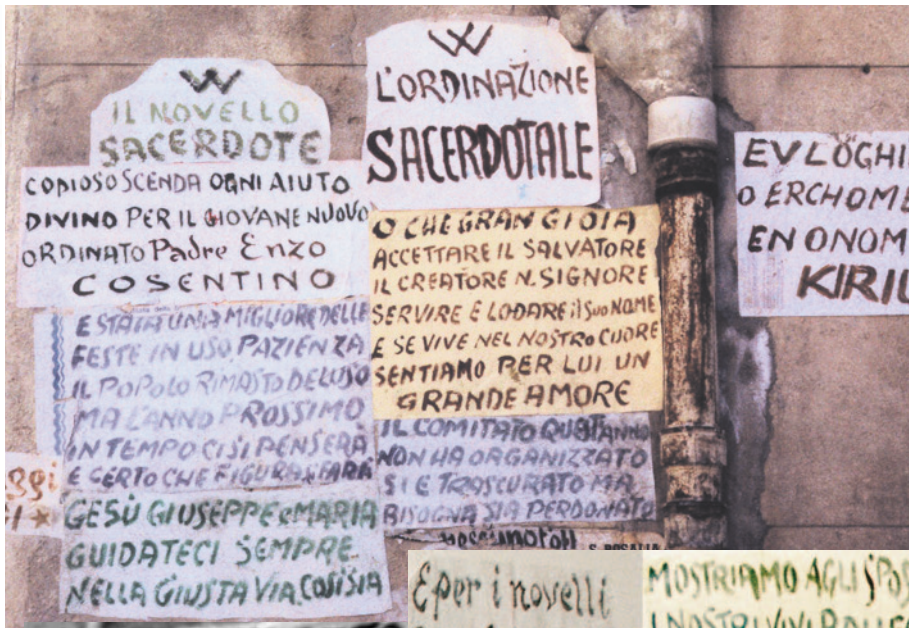 W
IL NOVELLO
SACERDOTE
COPIOSO SCENDA OGNI AIUTO
DIVINO PER IL GIOVANE NUOVO
ORDINATO Padre Enzo
COSENTINO
E STATA UNA MIGLIORE DELLE
FESTE IN USO PAZIENZA
IL POPOLO RIMASTO DELUSO
MA L'ANNO PROSSIMO
IN TEMPO CI SI PENSERÀ
E CERTO CHE FIGURA SI FARÀ
GESÙ GIUSEPPE e MARIA
GUIDATECI SEMPRE
NELLA GIUSTA VIA COSÌ SIA
W
L'ORDINAZIONE
SACERDOTALE
O CHE GRAN GIOIA
ACCETTARE IL SALVATORE
IL CREATORE N. SIGNORE
SERVIRE E LODARE il SUO NOME
E SE VIVE NEL NOSTRO CUORE
SENTIAMO PER LUI UN
GRANDE AMORE
IL COMITATO QUEST'ANNO
NON HA ORGANIZZATO
SI E TRASCURATO MA
BISOGNA SIA PERDONATO
S. ROSALIA
EVLOGHI
O ERCHOME
EN ONOM
KIRIU
E per i novelli
MOSTRIAMO AGLI SPOS
I NOSTRI VIVI